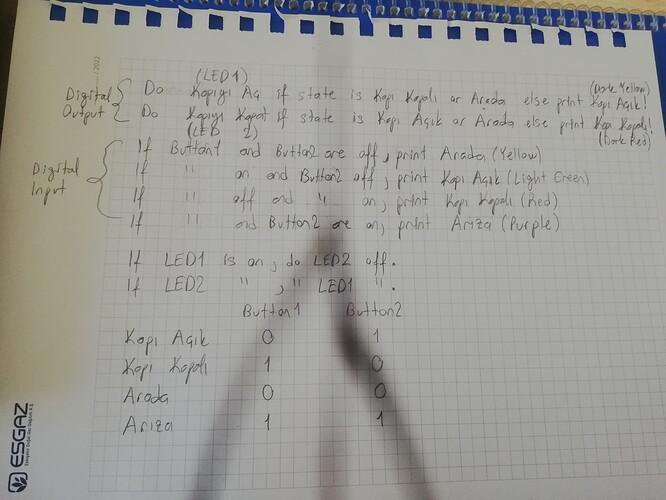 (LED1)
Digital Output { Do Kapıyı Aç if state is Kapı Kapalı or Arada else print Kapı Açık! (Dark Yellow)
Do Kapıyı Kapat if state is Kapı Açık or Arada else print Kapı Kapalı! (Dark Red)
(LED 2)
Digital Input { If Button1 and Button2 are off, print Arada (Yellow)
If " on and Button2 off, print Kapı Açık (Light Green)
If " off and " on, print Kapı Kapalı (Red)
If " and Button2 are on, print Ariza (Purple)
If LED1 is on, do LED2 off.
If LED2 " , " LED1 " .
Button1 Button2
Kapı Açık 0 1
Kapı Kapalı 1 0
Arada 0 0
Ariza 1 1
ESGAZ
/ 2022